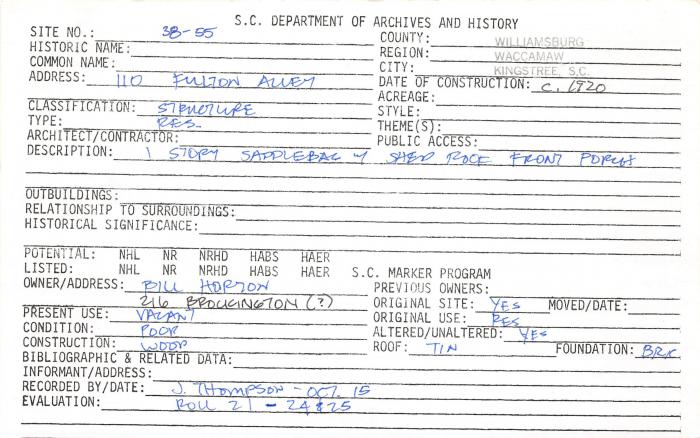 S.C. DEPARTMENT OF ARCHIVES AND HISTORY
SITE NO.: 38-55
COUNTY: WILLIAMSBURG
HISTORIC NAME:
REGION: WACCAMAW
COMMON NAME:
CITY: KINGSTREE, S.C.
ADDRESS: 110 FULTON ALLEY
DATE OF CONSTRUCTION: C. 1920
ACREAGE:
CLASSIFICATION: STRUCTURE
STYLE:
TYPE: RES.
THEME(S):
ARCHITECT/CONTRACTOR:
PUBLIC ACCESS:
DESCRIPTION: 1 STORY SADDLEBAG W/ SHED ROOF FRONT PORCH
OUTBUILDINGS:
RELATIONSHIP TO SURROUNDINGS:
HISTORICAL SIGNIFICANCE:
POTENTIAL: NHL NR NRHD HABS HAER
LISTED: NHL NR NRHD HABS HAER S.C. MARKER PROGRAM
OWNER/ADDRESS: BILL HORTON
PREVIOUS OWNERS:
216 BROCKINGTON (?)
ORIGINAL SITE: YES MOVED/DATE:
PRESENT USE: VACANT
ORIGINAL USE: RES
CONDITION: POOR
ALTERED/UNALTERED: YES
CONSTRUCTION: WOOD
ROOF: TIN FOUNDATION: BRK
BIBLIOGRAPHIC & RELATED DATA:
INFORMANT/ADDRESS:
RECORDED BY/DATE: J. THOMPSON - OCT. 15
EVALUATION: ROLL 21 - 24 & 25